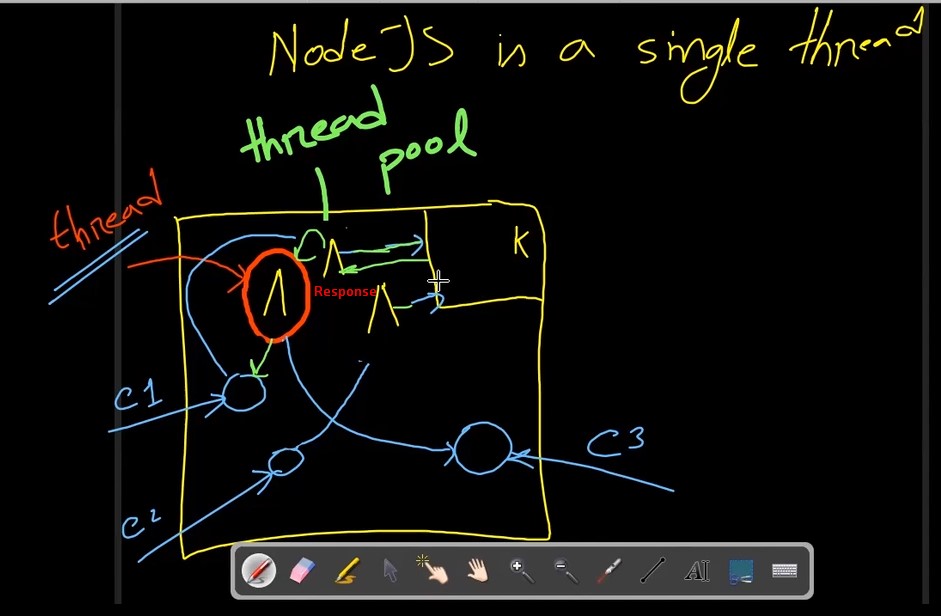 Node JS is a single thread
thread
pool
thread
K
Response
C1
C3
C2
AI